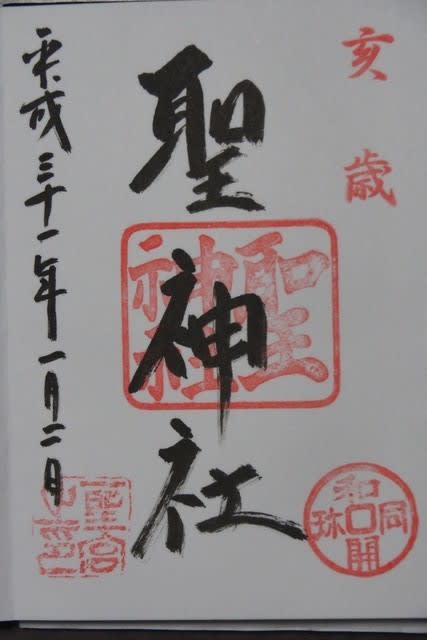 亥歳
聖神社
聖神社
和同開珎
平成三十一年一月二日
聖宮